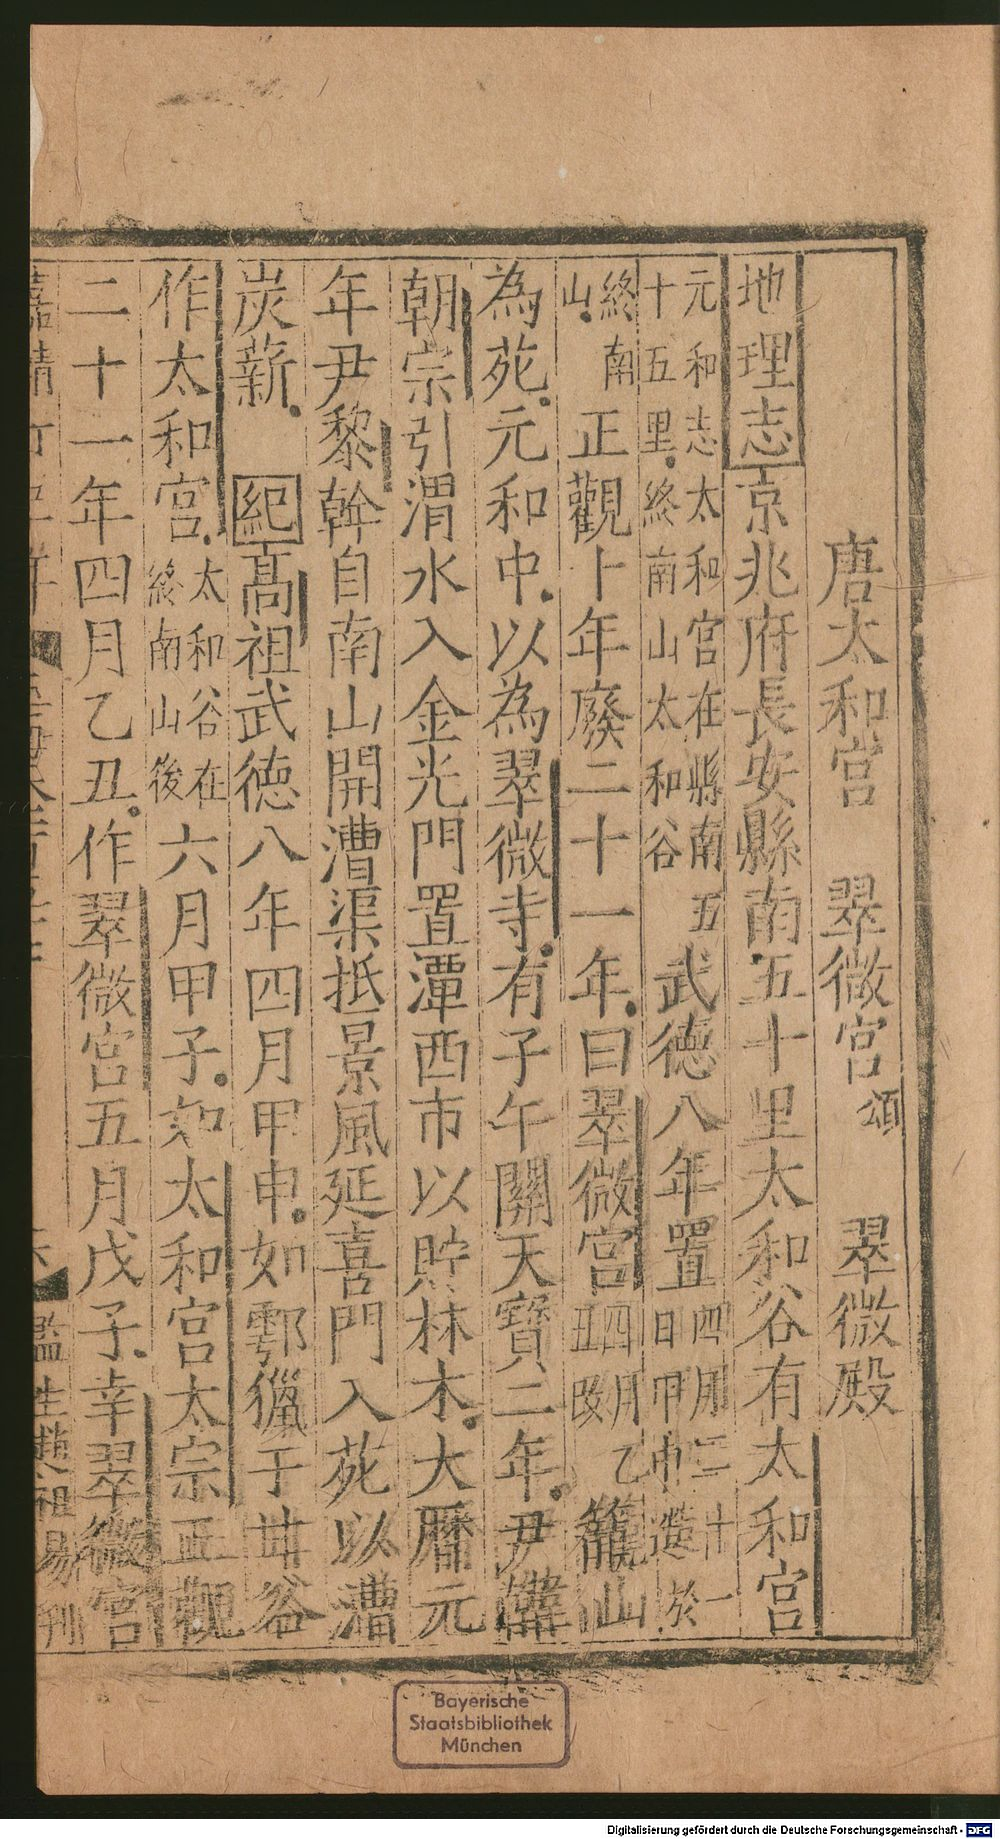 唐太和宮 翠微宮頌 翠微殿
地理志京兆府長安縣南五十里太和谷有太和宮
元和志太和宮在縣南五十五里終南山太和谷武德八年置四月二十一日甲申造於
終南山正觀十年廢二十一年曰翠微宮四月乙丑改籠山
為苑元和中以為翠微寺有子午關天寶二年尹韓
朝宗引渭水入金光門置潭西市以貯林木大曆元
年尹黎幹自南山開漕渠抵景風延喜門入苑以漕
炭薪 紀高祖武德八年四月甲申如鄠獵于甘谷
作太和宮太和谷在終南山後六月甲子如太和宮太宗正觀
二十一年四月乙丑作翠微宮五月戊子幸翠微宮
監生趙祖易刊
Bayerische
Staatsbibliothek
München
Digitalisierung gefördert durch die Deutsche Forschungsgemeinschaft - DFG